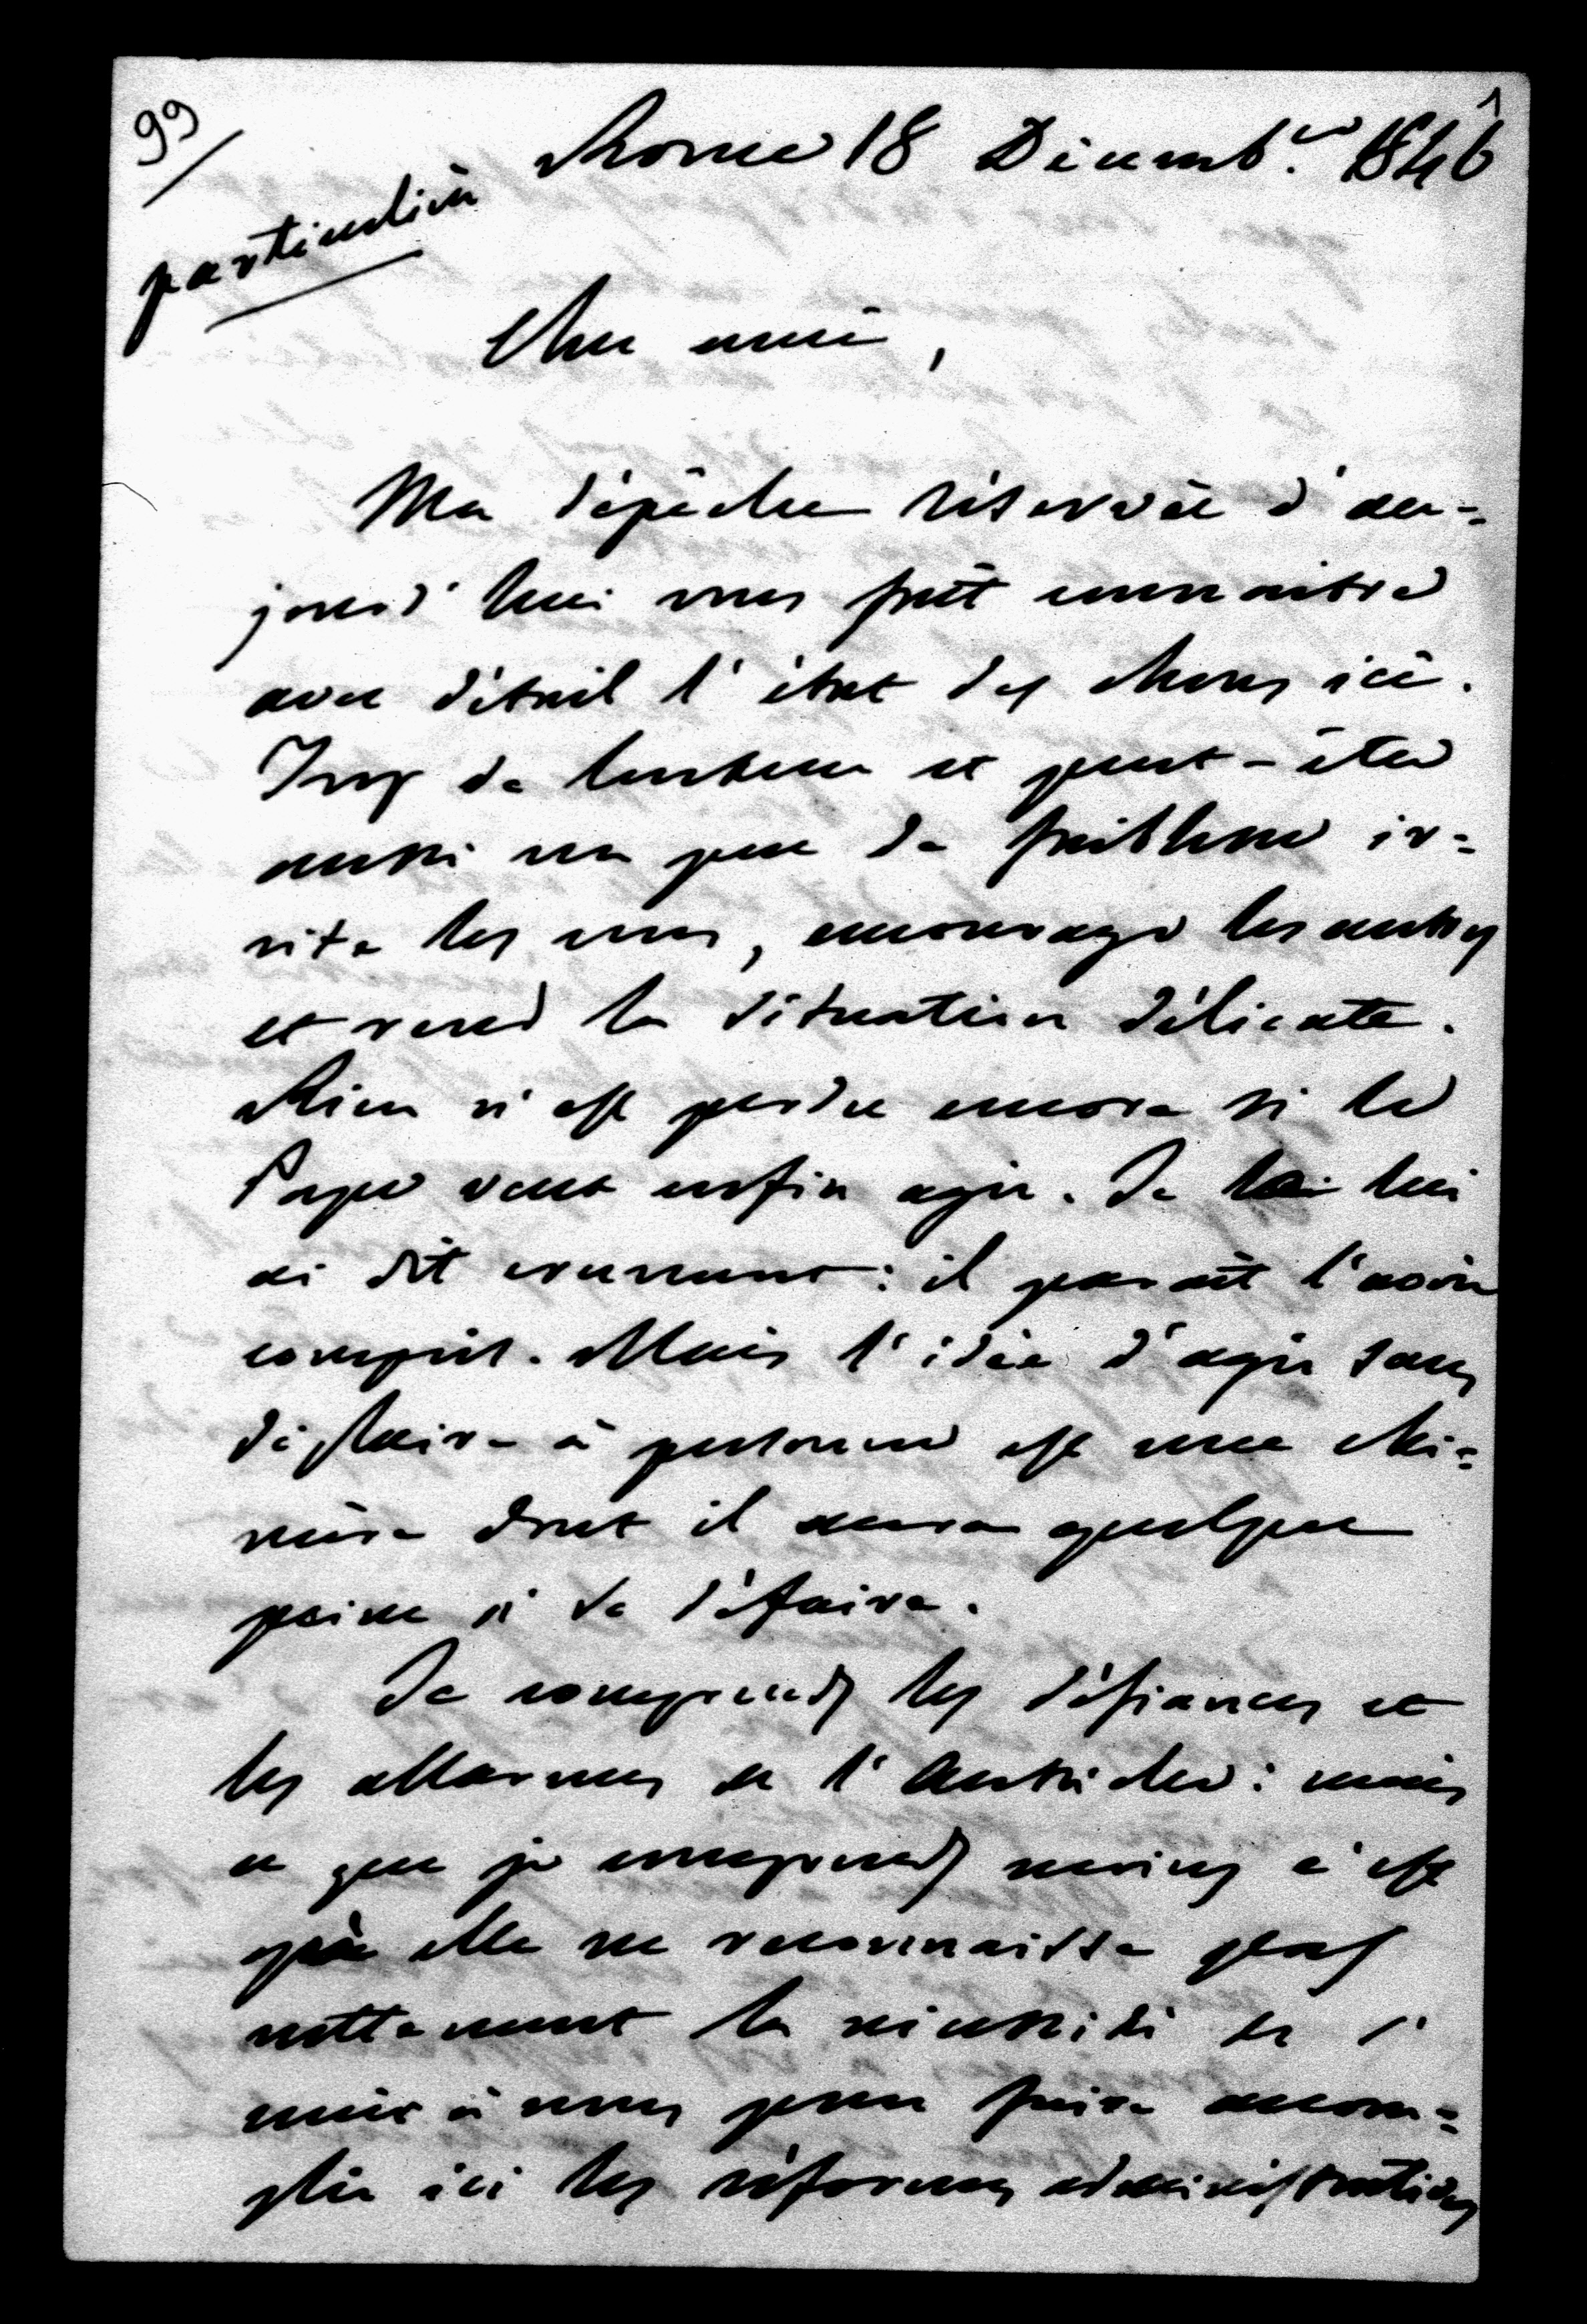 99
1
Rome 18 Décemb.re 1846
particulière
Cher ami,
Ma dépêche réservée d'au-
jourd'hui vous fait connaitre
avec détail l'état des choses ici.
Trop de lenteur et peut-être
aussi un peu de faiblesse ir-
rite les uns, encourage les autres
et rend la situation délicate.
Rien n'est perdu encore si le
Pape veut enfin agir. Je lui
ai dit crument: il parait l'avoir
compris. Mais l'idée d'agir sans
déplaire à personne est une chi-
mère dont il aura quelque
peine à se défaire.
Je comprends les défiances et
les allarmes de l'Autriche: mais
ce que je comprends moins c'est
qu'elle ne reconnaisse pas
nettement la nécessité de s'
unir à nous pour faire accom-
plir ici les réformes administratives